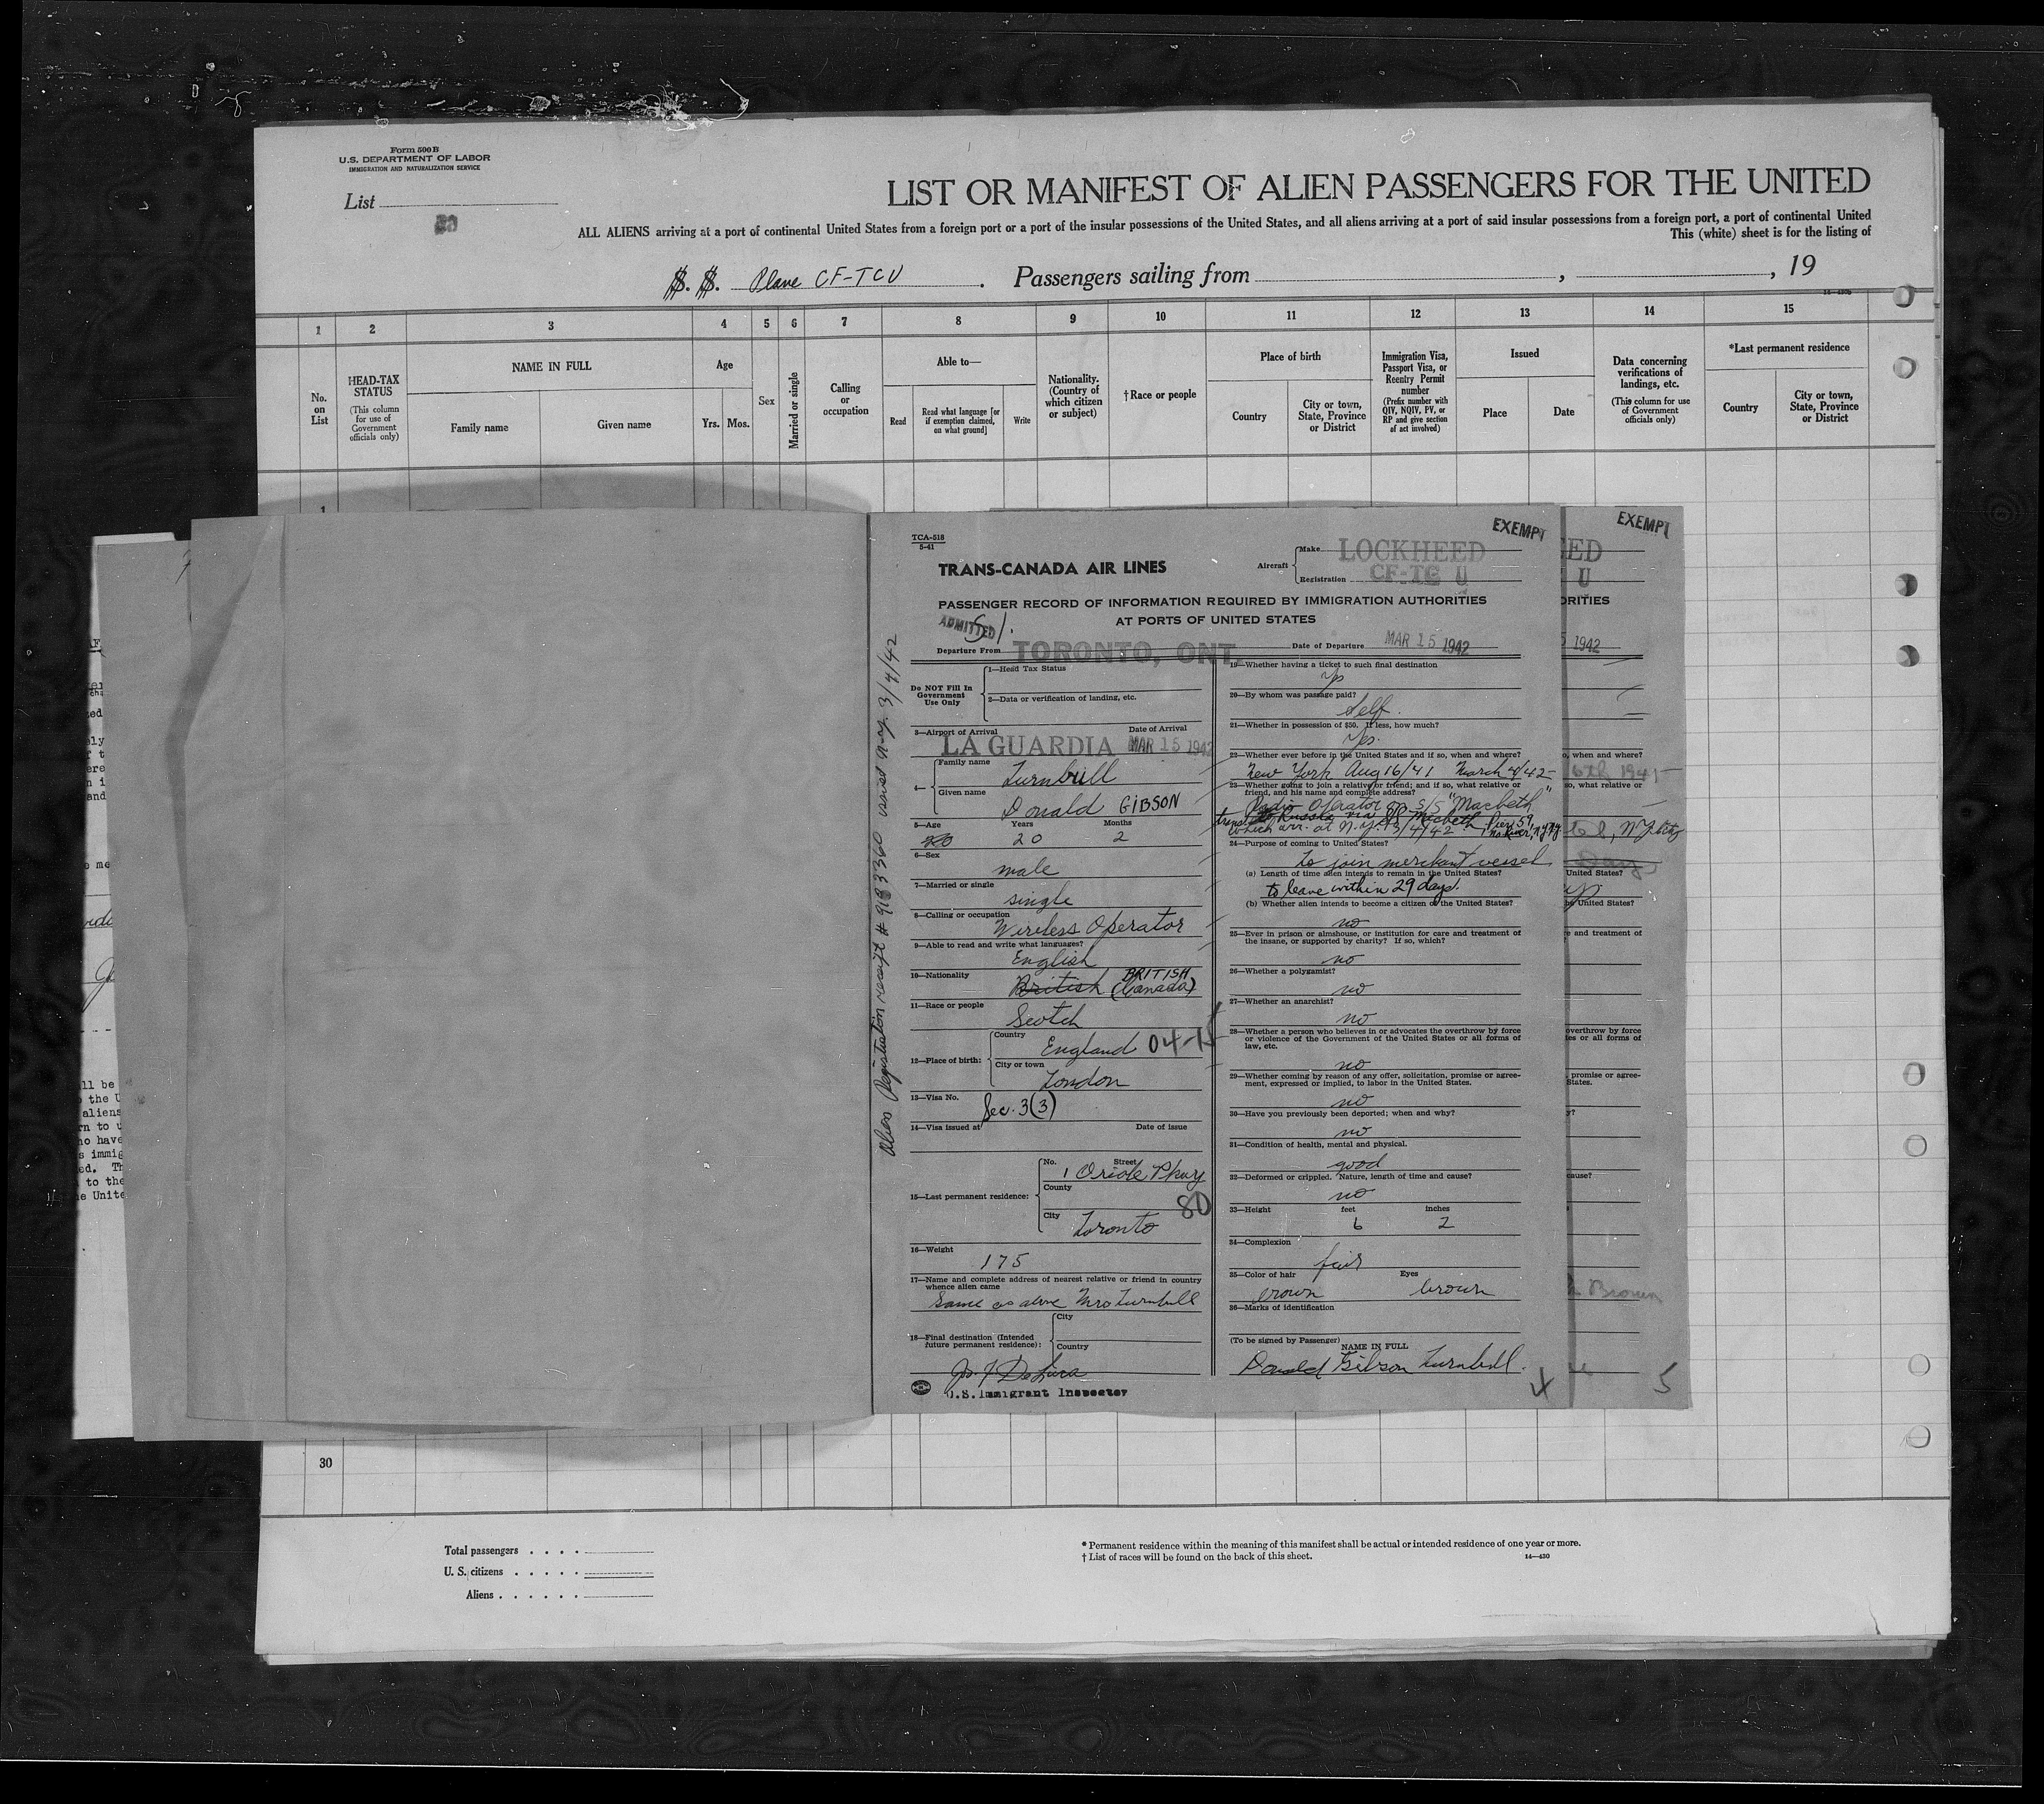 Form 500 B
U.S. DEPARTMENT OF LABOR
IMMIGRATION AND NATURALIZATION SERVICE
List
LIST OR MANIFEST OF ALIEN PASSENGERS FOR THE UNITED
ALL ALIENS arriving at a port of continental United States from a foreign port or a port of the insular possessions of the United States, and all aliens arriving at a port of said insular possessions from a foreign port, a port of continental United
This (white) sheet is for the listing of
S. S. Plane CF-TCU . Passengers sailing from , , 19
1 2 3 4 5 6 7 8 9 10 11 12 13 14 15
No. on List
HEAD-TAX STATUS
(This column for use of Government officials only)
NAME IN FULL
Family name
Given name
Age
Yrs. Mos.
Sex
Married or single
Calling or occupation
Able to—
Read
Read what language [or if exemption claimed, on what ground]
Write
Nationality. (Country of which citizen or subject)
†Race or people
Place of birth
Country
City or town, State, Province or District
Immigration Visa, Passport Visa, or Reentry Permit number
(Prefix number with QIV, NQIV, PV, or RP and give section of act involved)
Issued
Place
Date
Data concerning verifications of landings, etc.
(This column for use of Government officials only)
*Last permanent residence
Country
City or town, State, Province or District
1
TCA-518
5-41
EXEMPT
TRANS-CANADA AIR LINES
Aircraft
Make LOCKHEED
Registration CF-TC U
PASSENGER RECORD OF INFORMATION REQUIRED BY IMMIGRATION AUTHORITIES
AT PORTS OF UNITED STATES
ADMITTED
Departure From TORONTO, ONT.
Date of Departure MAR 15 1942
Alien Registration receipt # 9183360 issd N.Y. 3/4/42
Do NOT Fill In Government Use Only
1—Head Tax Status
2—Data or verification of landing, etc.
3—Airport of Arrival
Date of Arrival
LA GUARDIA MAR 15 1942
4—
Family name
Turnbull
Given name
Donald GIBSON
5—Age Years Months
20 20 2
6—Sex
male
7—Married or single
single
8—Calling or occupation
Wireless Operator
9—Able to read and write what languages?
English
10—Nationality
British BRITISH (Canada)
11—Race or people
Scotch
12—Place of birth:
Country
England 04-15
City or town
London
13—Visa No.
Sec. 3(3)
14—Visa issued at Date of issue
15—Last permanent residence:
No. Street
1 Oriole Pkwy
County
80
City
Toronto
16—Weight
175
17—Name and complete address of nearest relative or friend in country whence alien came
Same as above Mrs Turnbull
18—Final destination (Intended future permanent residence):
City
Country
U.S. Immigrant Inspector
19—Whether having a ticket to such final destination
Yes
20—By whom was passage paid?
Self.
21—Whether in possession of $50. If less, how much?
Yes.
22—Whether ever before in the United States and if so, when and where?
New York Aug 16/41 March 4/42
23—Whether going to join a relative or friend; and if so, what relative or friend, and his name and complete address?
Radio Operator on S/S "Macbeth"
which arr. at N.Y. 3/4/42
24—Purpose of coming to United States?
to join merchant vessel
(a) Length of time alien intends to remain in the United States?
to leave within 29 days.
(b) Whether alien intends to become a citizen of the United States?
no
25—Ever in prison or almshouse, or institution for care and treatment of the insane, or supported by charity? If so, which?
no
26—Whether a polygamist?
no
27—Whether an anarchist?
no
28—Whether a person who believes in or advocates the overthrow by force or violence of the Government of the United States or all forms of law, etc.
no
29—Whether coming by reason of any offer, solicitation, promise or agreement, expressed or implied, to labor in the United States.
no
30—Have you previously been deported; when and why?
no
31—Condition of health, mental and physical.
good
32—Deformed or crippled. Nature, length of time and cause?
no
33—Height feet inches
6 2
34—Complexion
fair
35—Color of hair Eyes
brown brown
36—Marks of identification
(To be signed by Passenger)
NAME IN FULL
Donald Gibson Turnbull.
4
EXEMPT
U
1942
Brown
5
30
Total passengers . . . .
U. S. citizens . . . . .
Aliens . . . . . .
* Permanent residence within the meaning of this manifest shall be actual or intended residence of one year or more.
† List of races will be found on the back of this sheet.
14—430